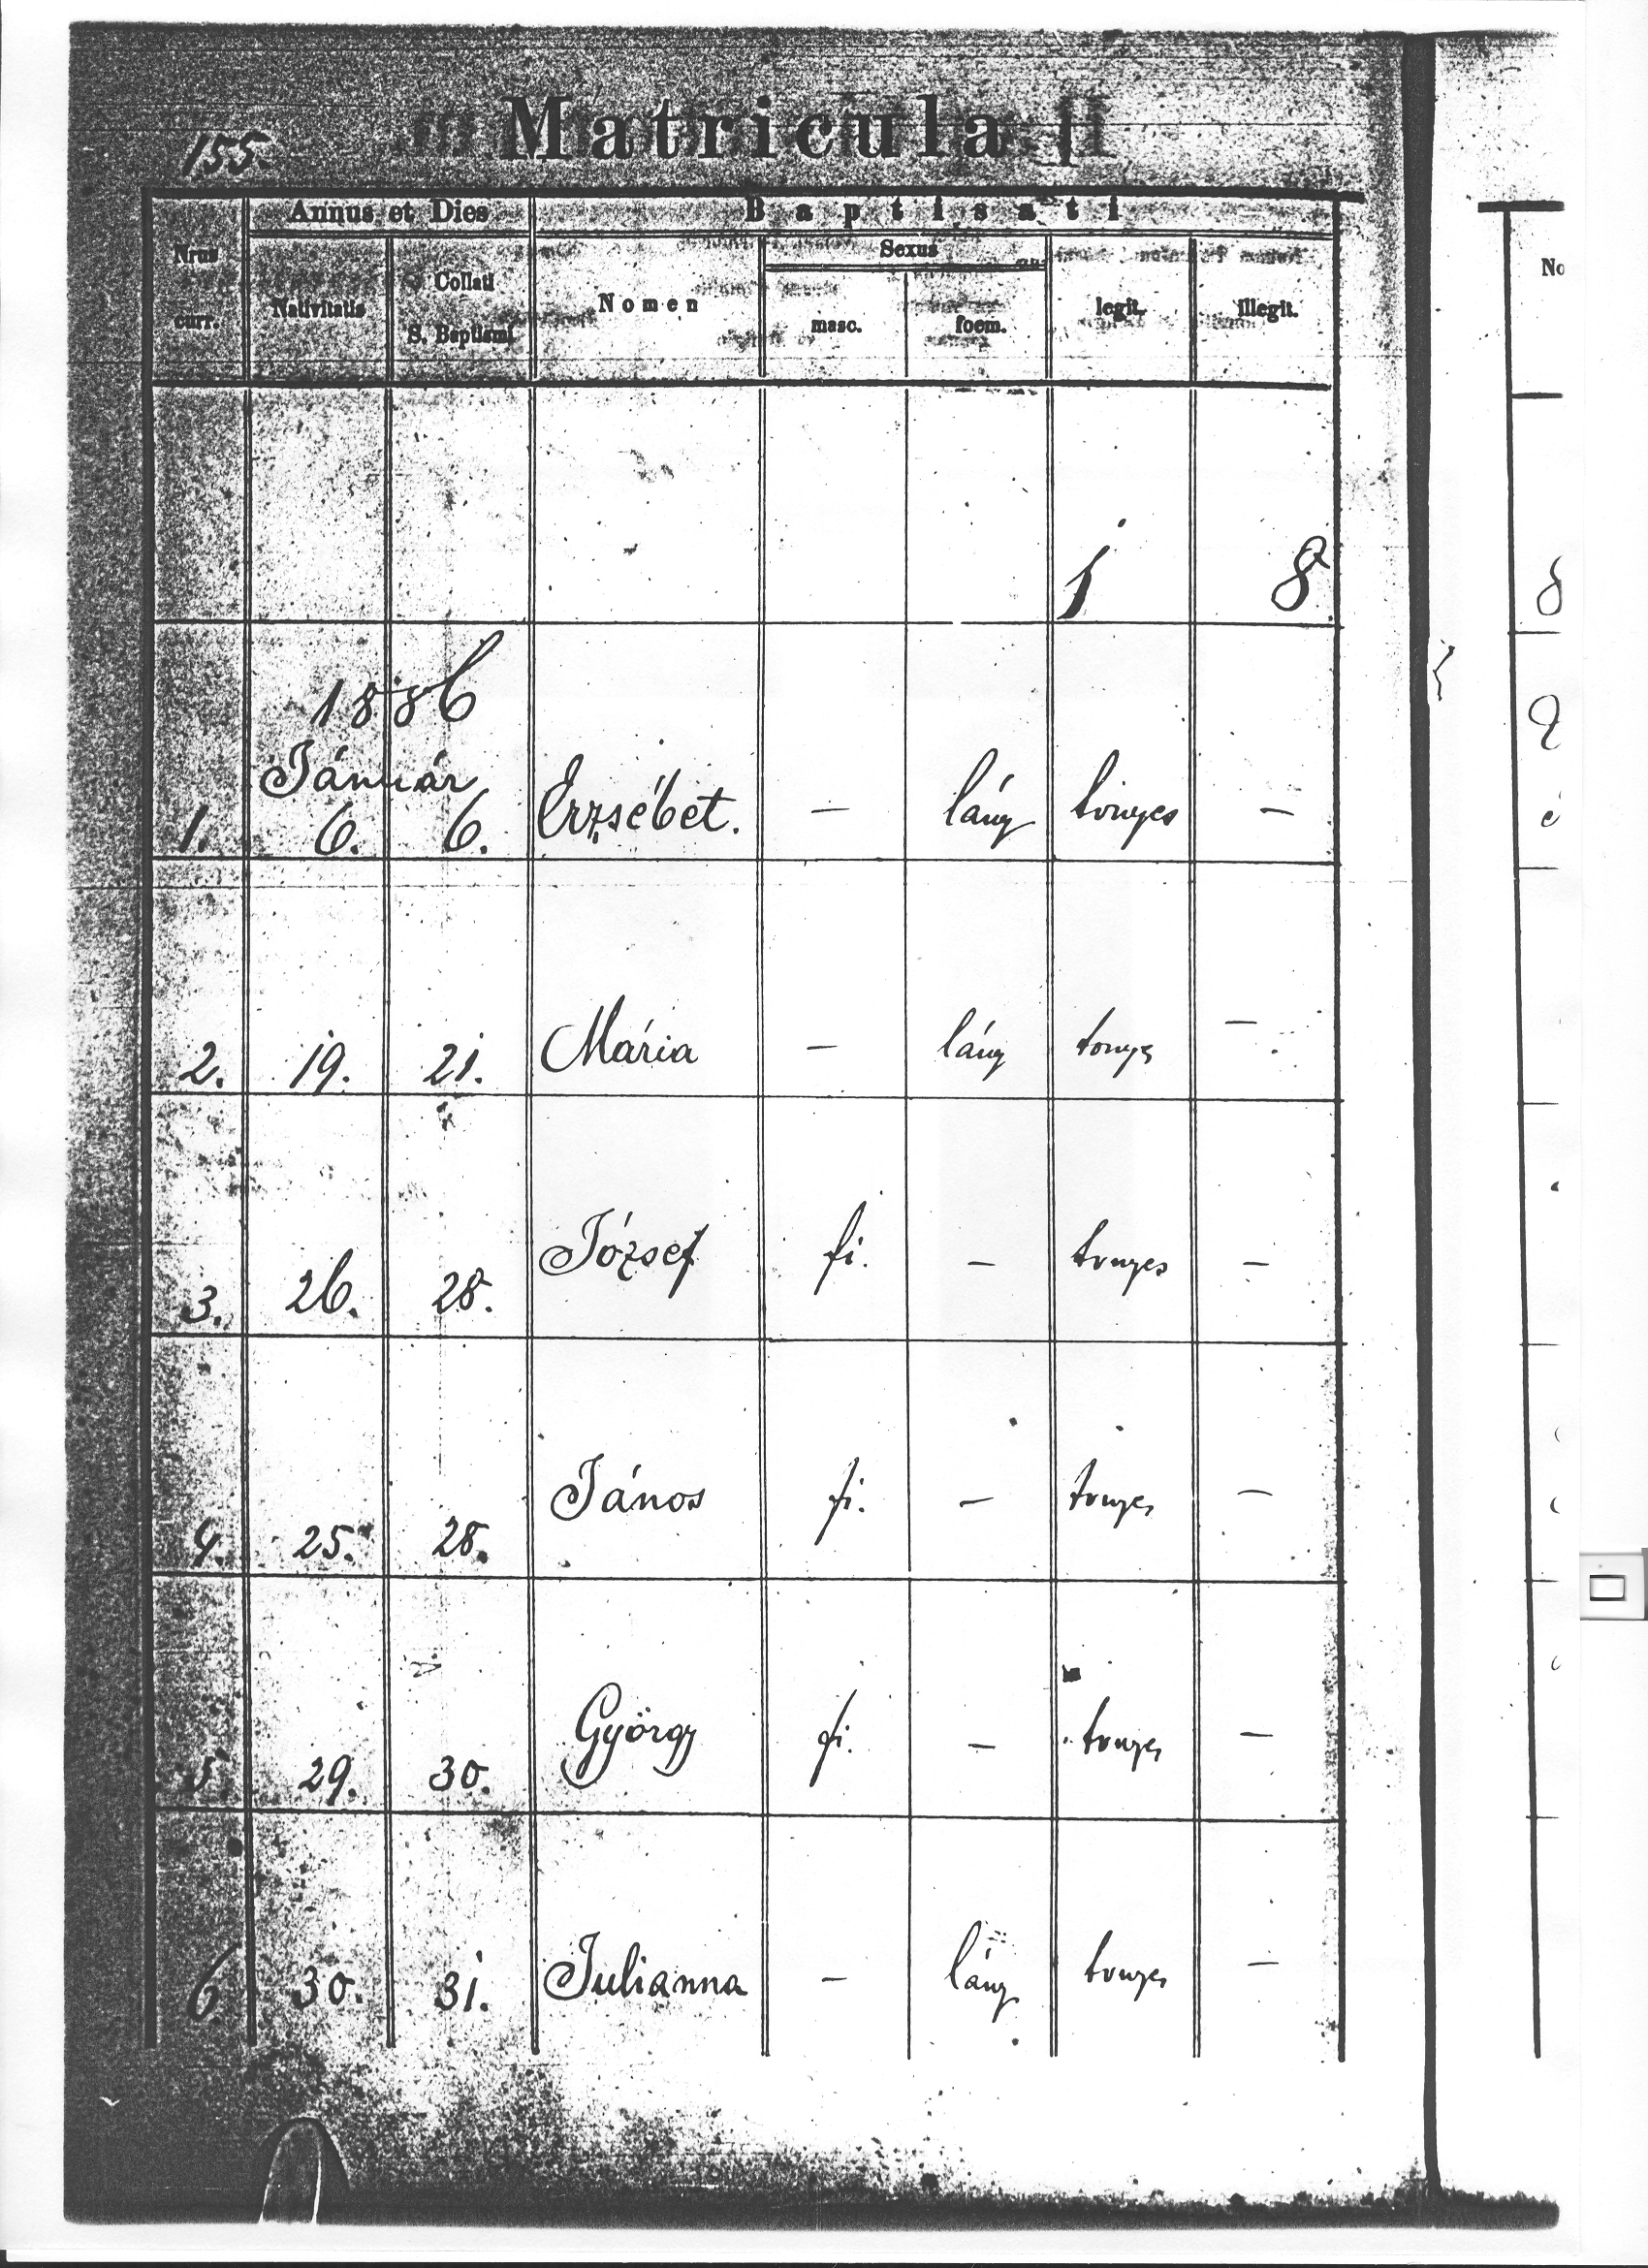 155.
Matricula
Annus et Dies Baptisati
Nrus curr. Nativitatis Collati S. Baptismi Nomen Sexus masc. foem. legit. illegit.
1 8
1886
Január
1. 6. 6. Erzsébet. — lány tvnyes —
2. 19. 21. Mária — lány tvnyes —
3. 26. 28. József fi. — tvnyes —
4. 25. 28. János fi. — tvnyes —
5 29. 30. György fi. — tvnyes —
6 30. 31. Julianna — lány tvnyes —
No